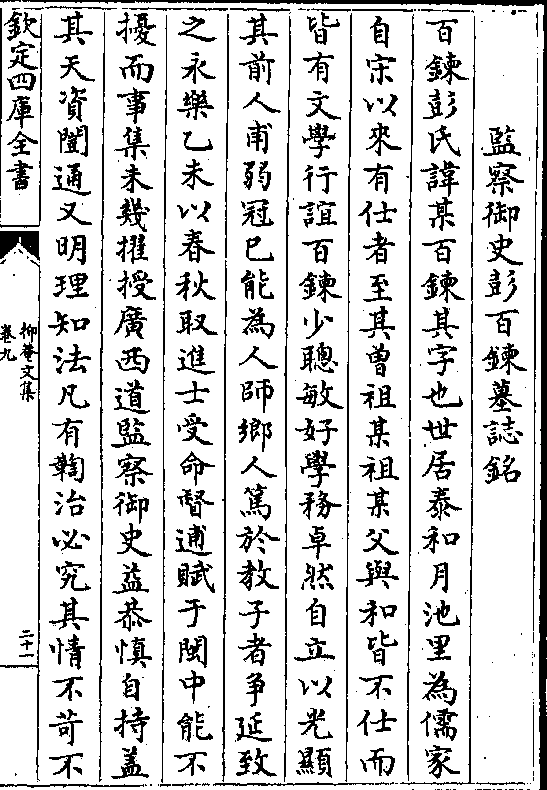 監察御史彭百鍊墓誌銘
百鍊彭氏諱某百鍊其字也世居泰和月池里為儒家
自宋以來有仕者至其曾祖某祖某父與和皆不仕而
皆有文學行誼百鍊少聰敏好學務卓然自立以光顯
其前人甫弱冠已能為人師鄉人篤於教子者争延致
之永樂乙未以春秋取進士受命督逋賦于閩中能不
擾而事集未幾擢授廣西道監察御史益恭慎自持盖
其天資闓通又明理知法凡有鞫治必究其情不苛不
欽定四庫全書
抑菴文集
卷九
二十一